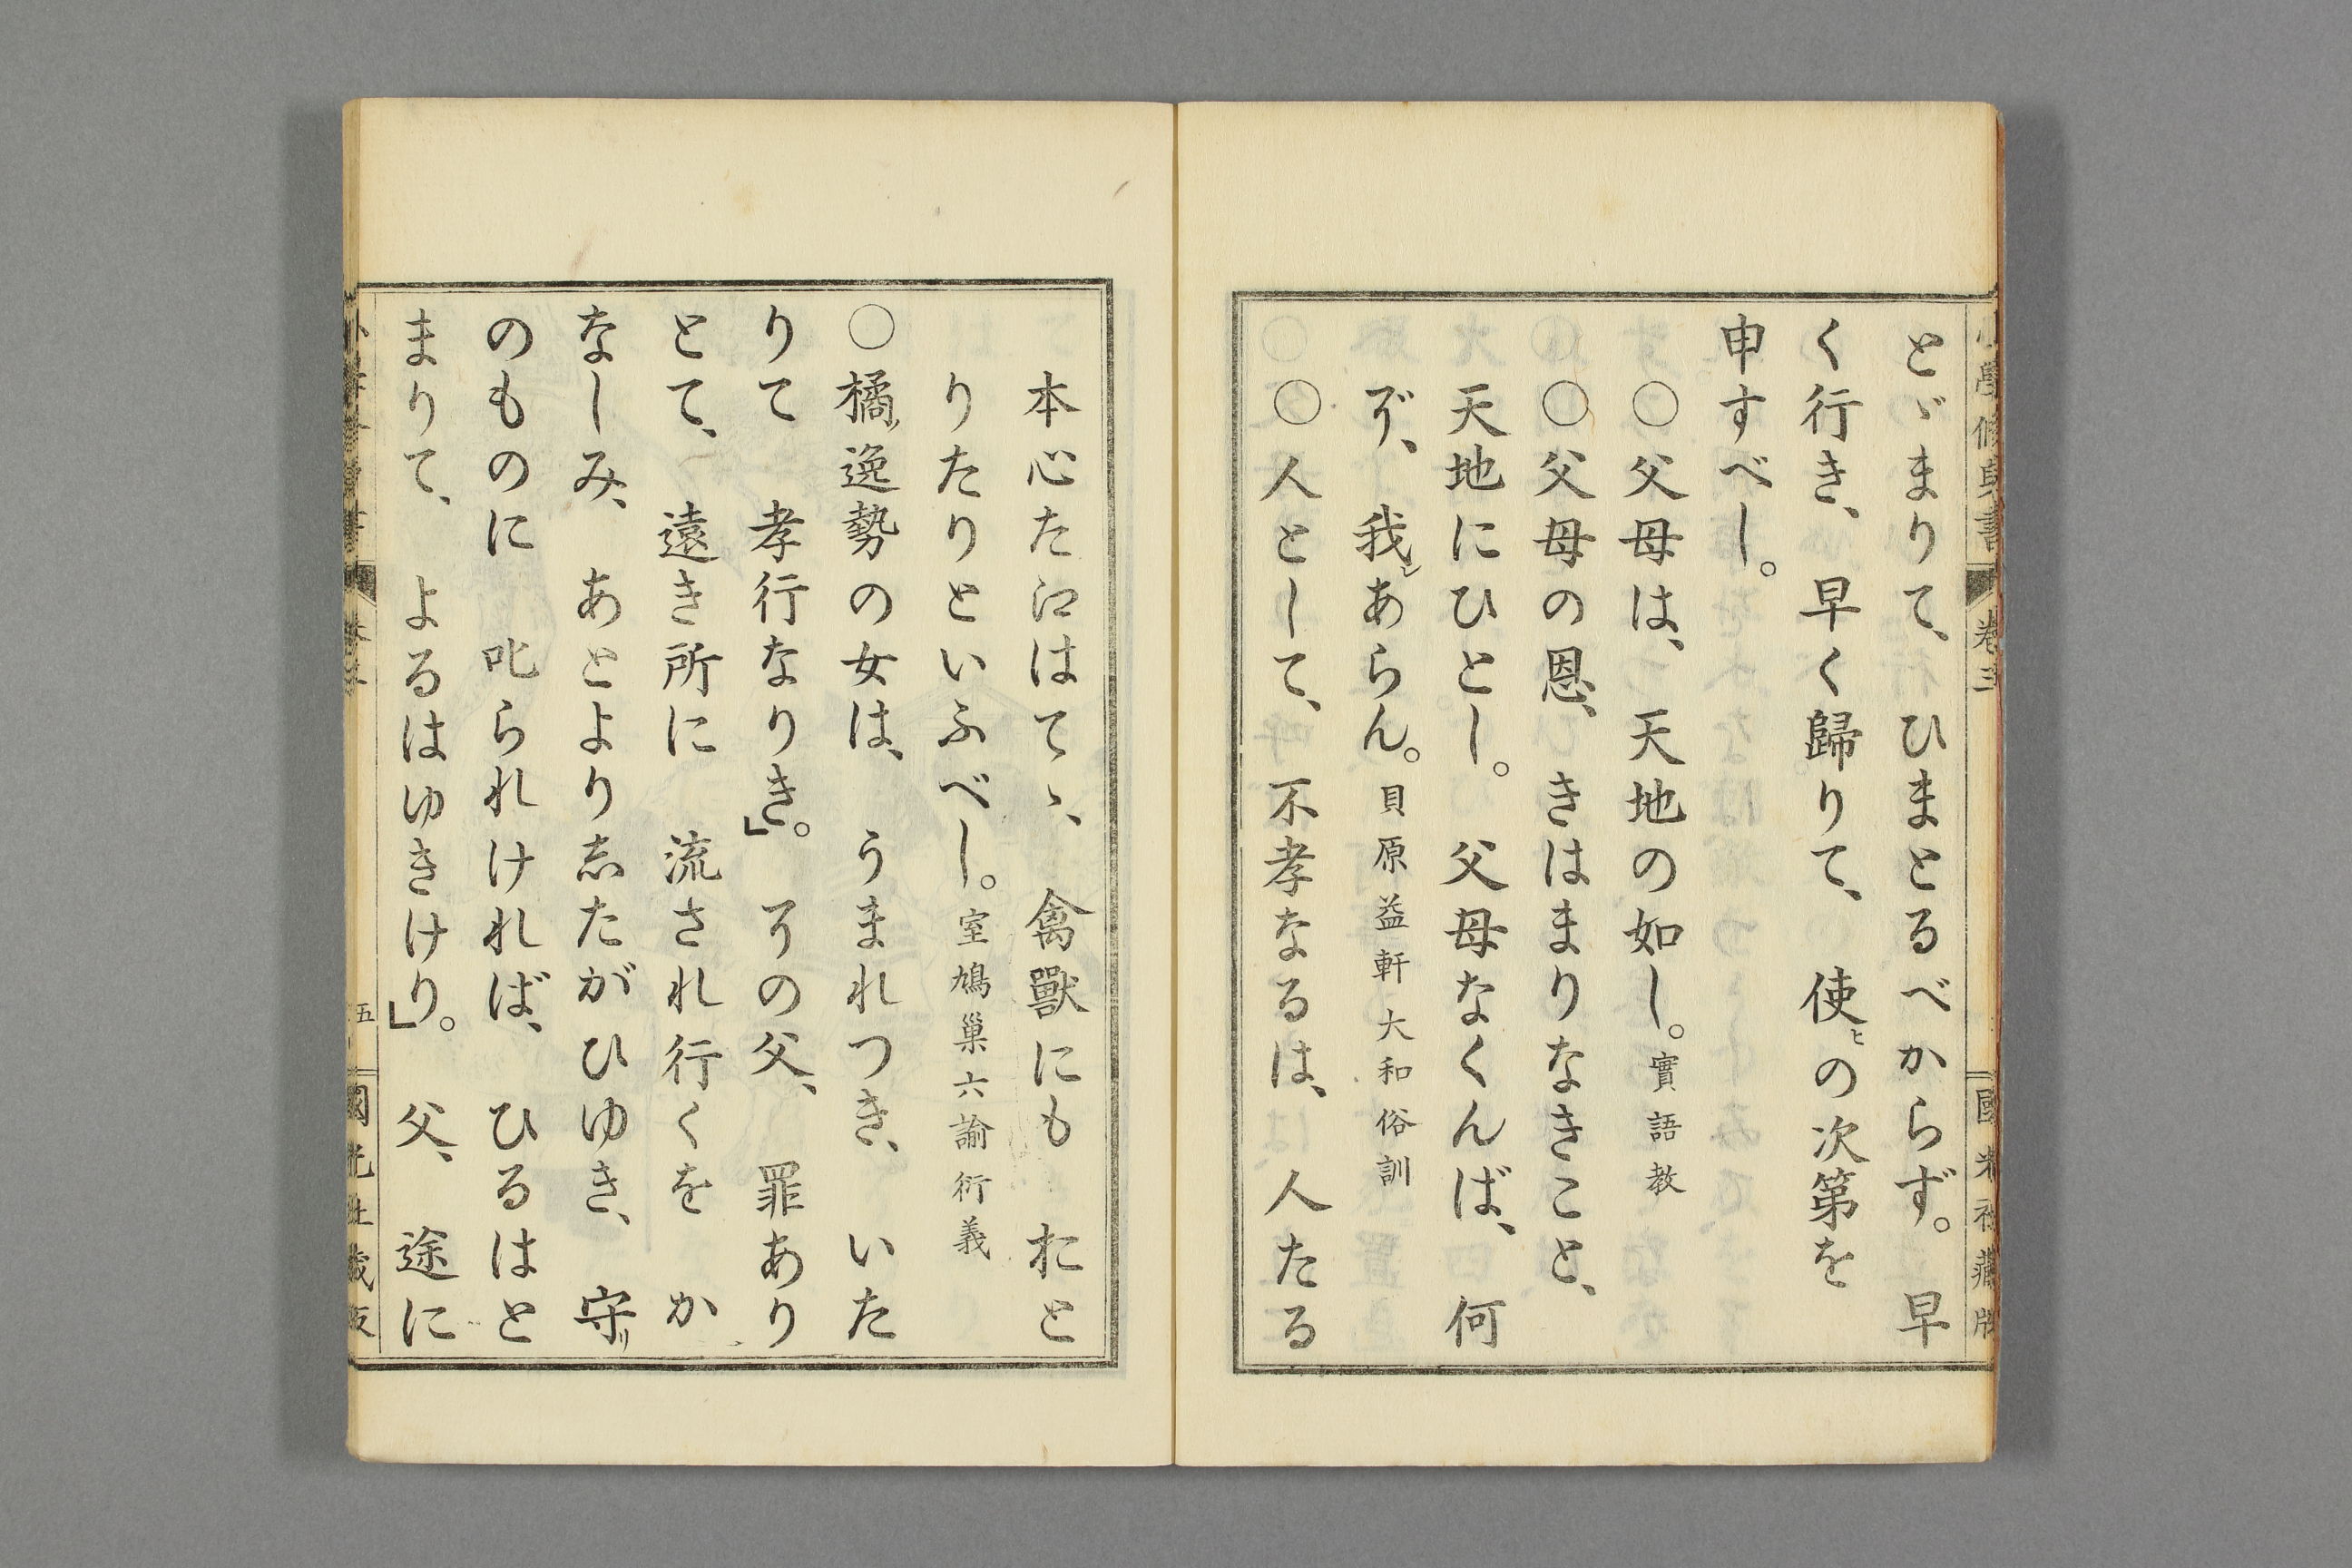 小學修身書 卷三 國光社藏版
とゞまりて、ひまとるべからず。早
く行き、早く歸りて、使ヒの次第を
申すべし。
○父母は、天地の如し。實語教
○父母の恩、きはまりなきこと、
天地にひとし。父母なくんば、何
ぞ、我レあらん。貝原益軒大和俗訓
○人として、不孝なるは、人たる
本心た江はてゝ、禽獸にも おと
りたりといふべし。室鳩巢六諭衍義
○橘ノ逸勢の女は、うまれつき、いた
りて 孝行なりき」。その父、罪あり
とて、遠き所に 流され行くを か
なしみ、あとより志たがひゆき、守リ
のものに 叱られければ、ひるはと
まりて、よるはゆきけり」。父、途に
五 國光社藏版